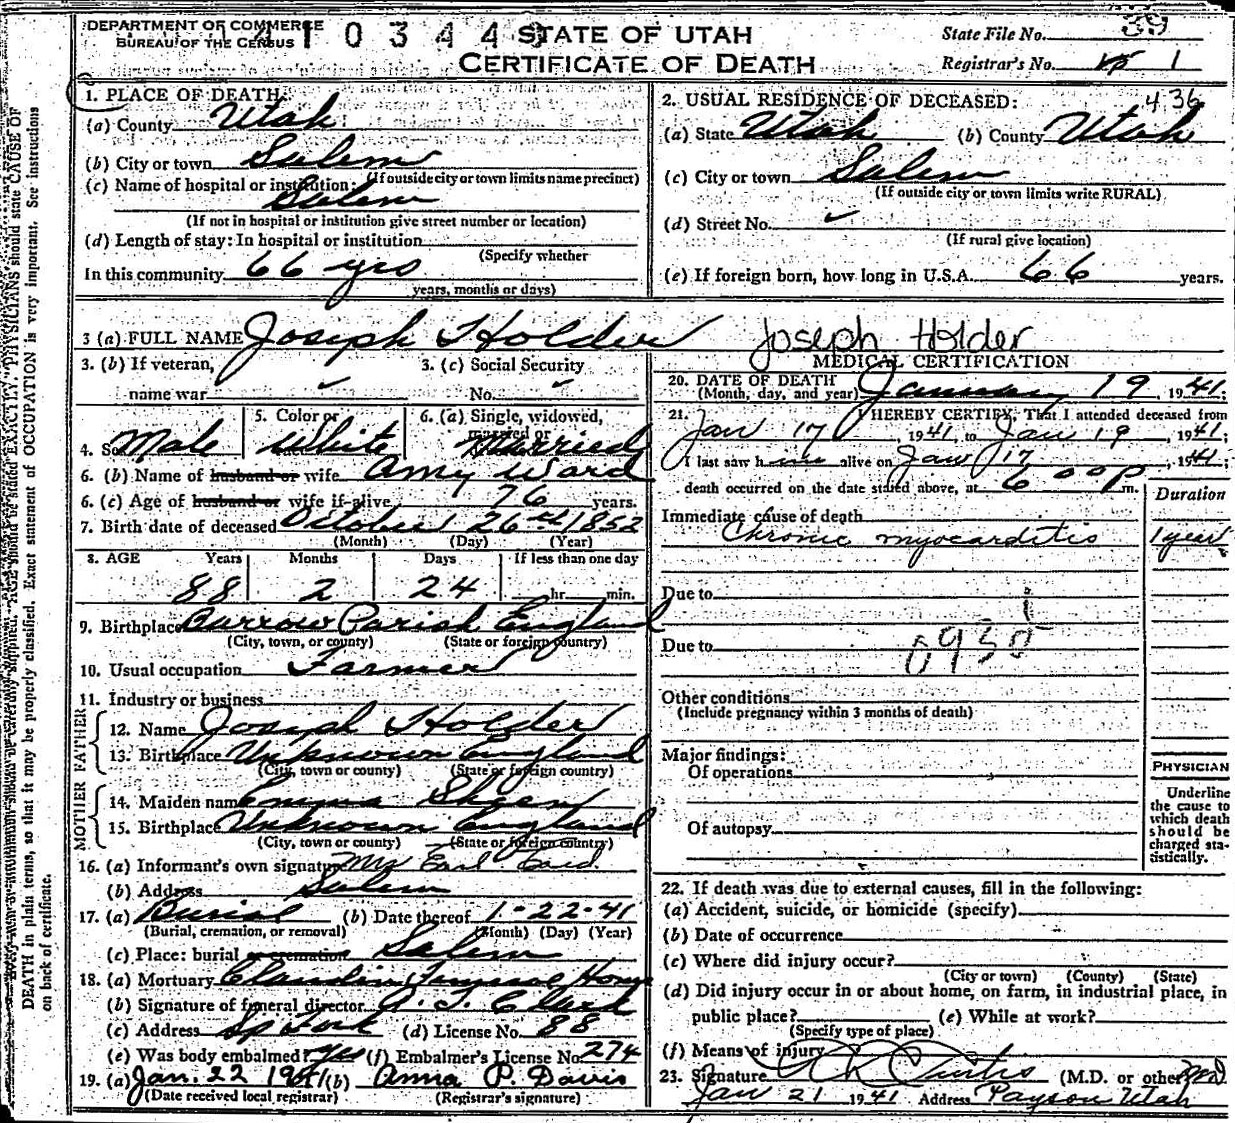 DEPARTMENT OF COMMERCE
BUREAU OF THE CENSUS
4 1 0 3 4 4
STATE OF UTAH
CERTIFICATE OF DEATH
State File No. 39
Registrar's No. 1
1. PLACE OF DEATH:
(a) County Utah
(b) City or town Salem
(If outside city or town limits name precinct)
(c) Name of hospital or institution:
Salem
(If not in hospital or institution give street number or location)
(d) Length of stay: In hospital or institution
(Specify whether
In this community 66 yrs
years, months or days)
2. USUAL RESIDENCE OF DECEASED: 436
(a) State Utah (b) County Utah
(c) City or town Salem
(If outside city or town limits write RURAL)
(d) Street No. ✓
(If rural give location)
(e) If foreign born, how long in U.S.A. 66 years.
3 (a) FULL NAME Joseph Holder Joseph Holder
3. (b) If veteran, name war ✓
3. (c) Social Security No. ✓
4. Sex Male
5. Color or White
6. (a) Single, widowed, married or Married
6. (b) Name of husband or wife Amy Ward
6. (c) Age of husband or wife if alive 76 years.
7. Birth date of deceased October 26th 1852
(Month) (Day) (Year)
8. AGE Years Months Days If less than one day
88 2 24 hr. min.
9. Birthplace Barrow Parish England
(City, town, or county) (State or foreign country)
10. Usual occupation Farmer
11. Industry or business
FATHER
12. Name Joseph Holder
13. Birthplace Unknown England
(City, town or county) (State or foreign country)
MOTHER
14. Maiden name Emma Skeen
15. Birthplace Unknown England
(City, town or county) (State or foreign country)
16. (a) Informant's own signature Mrs Earl
(b) Address Salem
17. (a) Burial (b) Date thereof 1-22-41
(Burial, cremation, or removal) (Month) (Day) (Year)
(c) Place: burial or cremation Salem
18. (a) Mortuary Claudin Funeral Home
(b) Signature of funeral director
(c) Address Sp Fork (d) License No. 88
(e) Was body embalmed? Yes (f) Embalmer's License No. 274
19. (a) Jan. 22 1941 (b) Anna P. Davis
(Date received local registrar) (Registrar's signature)
MEDICAL CERTIFICATION
20. DATE OF DEATH
(Month, day, and year) January 19, 1941;
21. I HEREBY CERTIFY, That I attended deceased from
Jan 17, 1941, to Jan 19, 1941;
I last saw him alive on Jan 17, 1941;
death occurred on the date stated above, at 6 00 p m.
Duration
Immediate cause of death
Chronic myocarditis 1 year
Due to
Due to 0930
Other conditions
(Include pregnancy within 3 months of death)
Major findings:
Of operations
Of autopsy
PHYSICIAN
Underline
the cause to
which death
should be
charged sta-
tistically.
22. If death was due to external causes, fill in the following:
(a) Accident, suicide, or homicide (specify)
(b) Date of occurrence
(c) Where did injury occur?
(City or town) (County) (State)
(d) Did injury occur in or about home, on farm, in industrial place, in
public place? (e) While at work?
(Specify type of place)
(f) Means of injury
23. Signature Curtis (M.D. or other) MD.
Jan 21 1941 Address Payson Utah
PHYSICIANS should state CAUSE OF
DEATH in plain terms, so that it may be properly classified. Exact statement of OCCUPATION is very important. See instructions
on back of certificate.